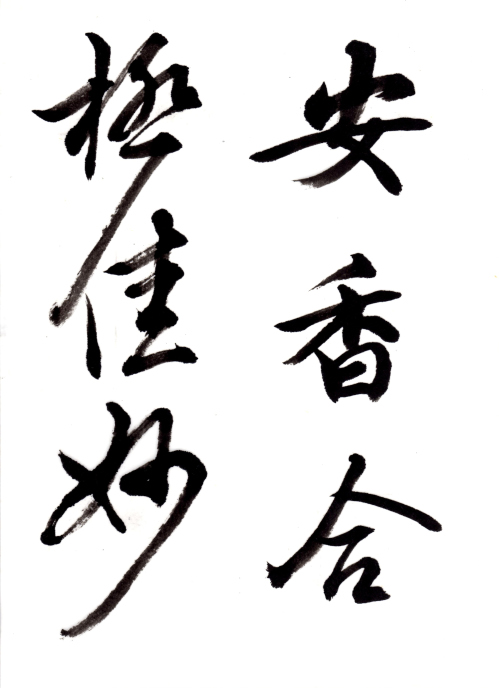 安香合
極佳妙